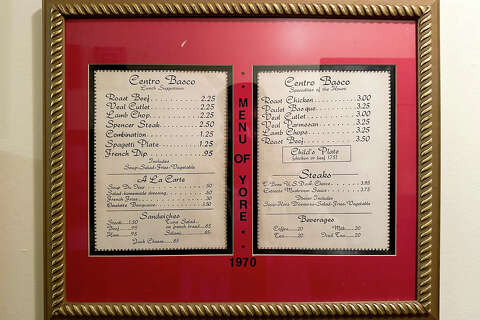 Centro Basco
Lunch Suggestions
Roast Beef 2.25
Veal Cutlet 2.25
Lamb Chop 2.25
Spencer Steak 2.50
Combination 1.25
Spagetti Plate 1.25
French Dip .95
Includes
Soup-Salad-Fries-Vegetable
A La Carte
Soup Du Jour .50
Salad-homemade dressing .60
French Fries .30
Omelette Basquaise
Sandwiches
Steak 1.50
Beef .95
Ham .95
Tuna Salad
on french bread .65
Salami .85
Jack Cheese .85
MENU OF YORE
1970
Centro Basco
Specialties of the House
Roast Chicken 3.00
Poulet Basque 3.25
Veal Cutlet 3.00
Veal Parmesan 3.25
Lamb Chops 3.25
Roast Beef 3.50
Child's Plate
chicken or beef 1.75
Steaks
T-Bone U.S.D.A. Choice 3.95
Dinner Includes
Soup-Hors D'oeuvres-Salad-Fries-Vegetable
Beverages
Coffee .20
Milk .20
Tea .20
Iced Tea .20